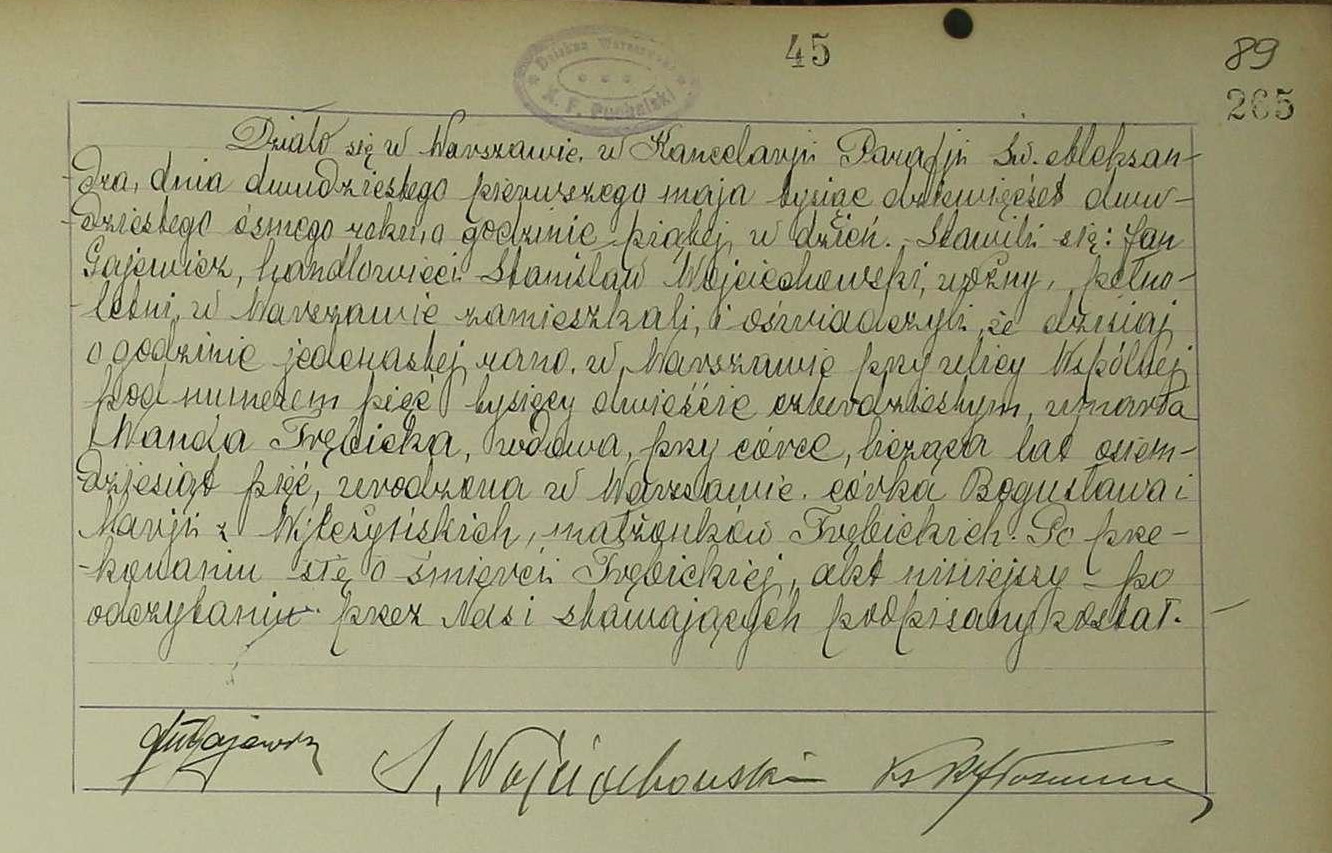 45
89
265
Dziekan Warszawski
X. F. Puchalski
Działo się w Warszawie, w Kancelarji Parafji Św. Aleksan-
dra, dnia dwudziestego pierwszego maja tysiąc dziewięćset dwu-
dziestego ósmego roku, o godzinie piątej w dzień. Stawili się: Jan
Gajewicz, handlowiec i Stanisław Wojciechowski, woźny, pełno-
letni, w Warszawie zamieszkali, i oświadczyli, że dzisiaj
o godzinie jedenastej rano, w Warszawie przy ulicy Wspólnej
pod numerem pięć tysięcy dwieście czterdziestym, umarła
Wanda Trębicka, wdowa, przy córce, licząca lat osiem-
dziesiąt pięć, urodzona w Warszawie, córka Bogusława i
Marji z Wilczyńskich, małżonków Trębickich. Po prze-
konaniu się o śmierci Trębickiej, akt niniejszy po
odczytaniu przez Nas i stawających podpisany został.
Gajewicz
S. Wojciechowski